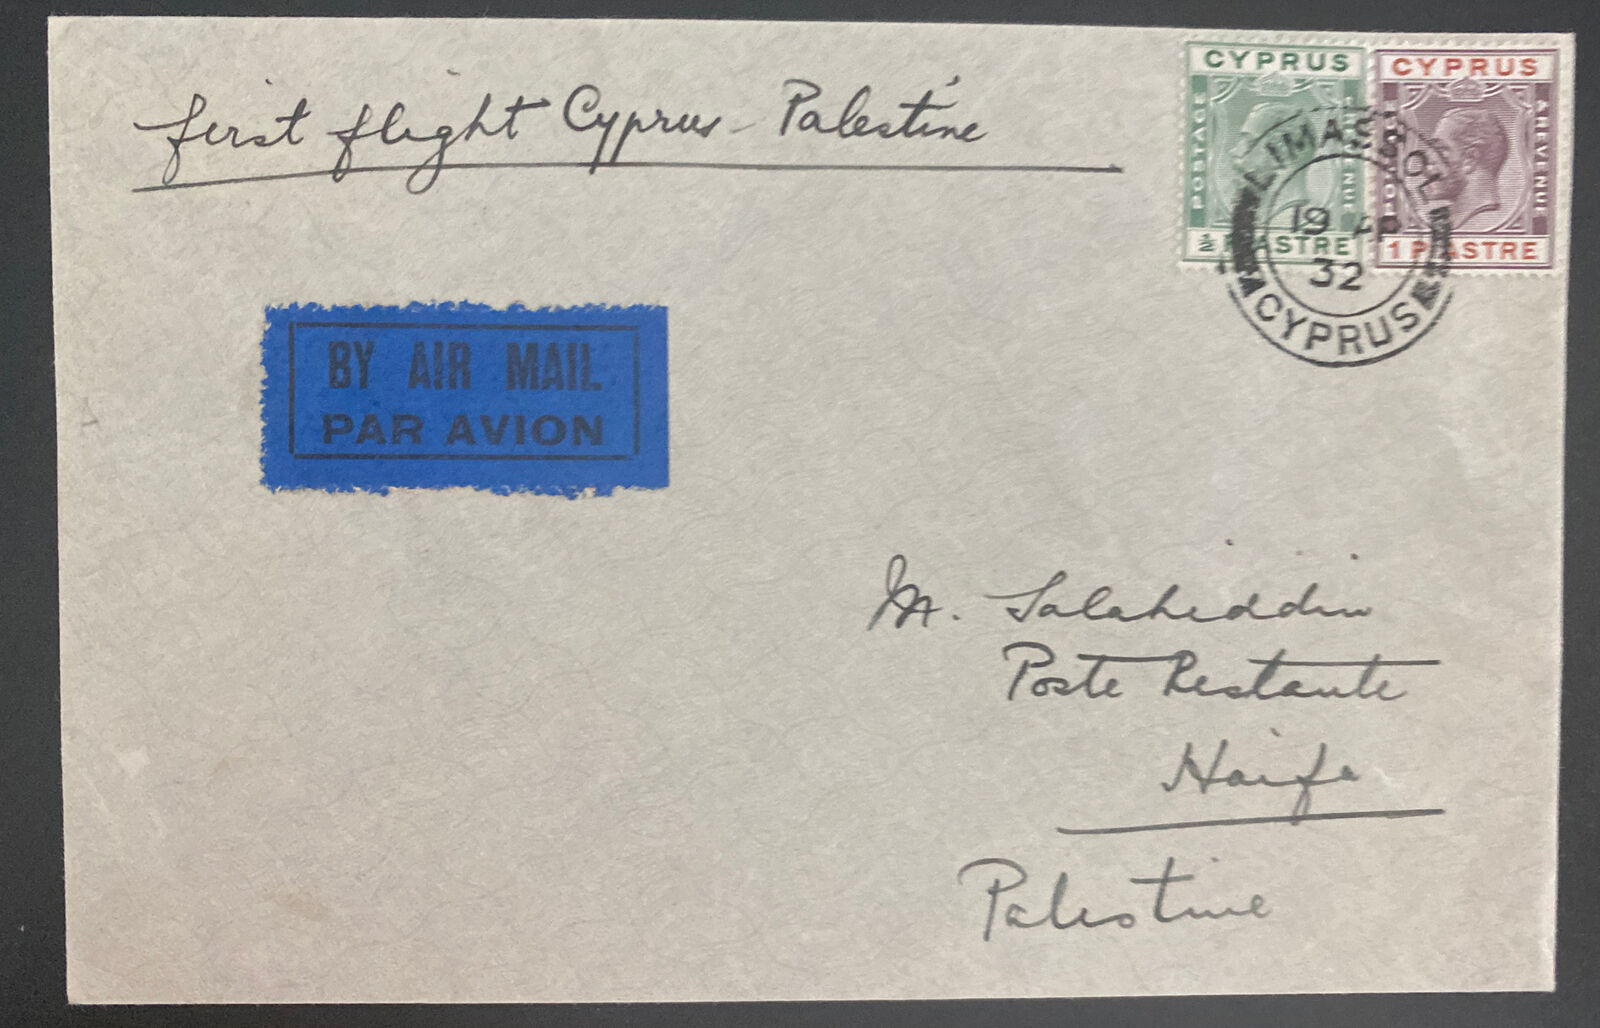 first flight Cyprus - Palestine
CYPRUS
POSTAGE
½ PIASTRE
CYPRUS
& REVENUE
1 PIASTRE
LIMASSOL
19
32
CYPRUS
BY AIR MAIL
PAR AVION
M. Salaheddin
Poste Restante
Haifa
Palestine